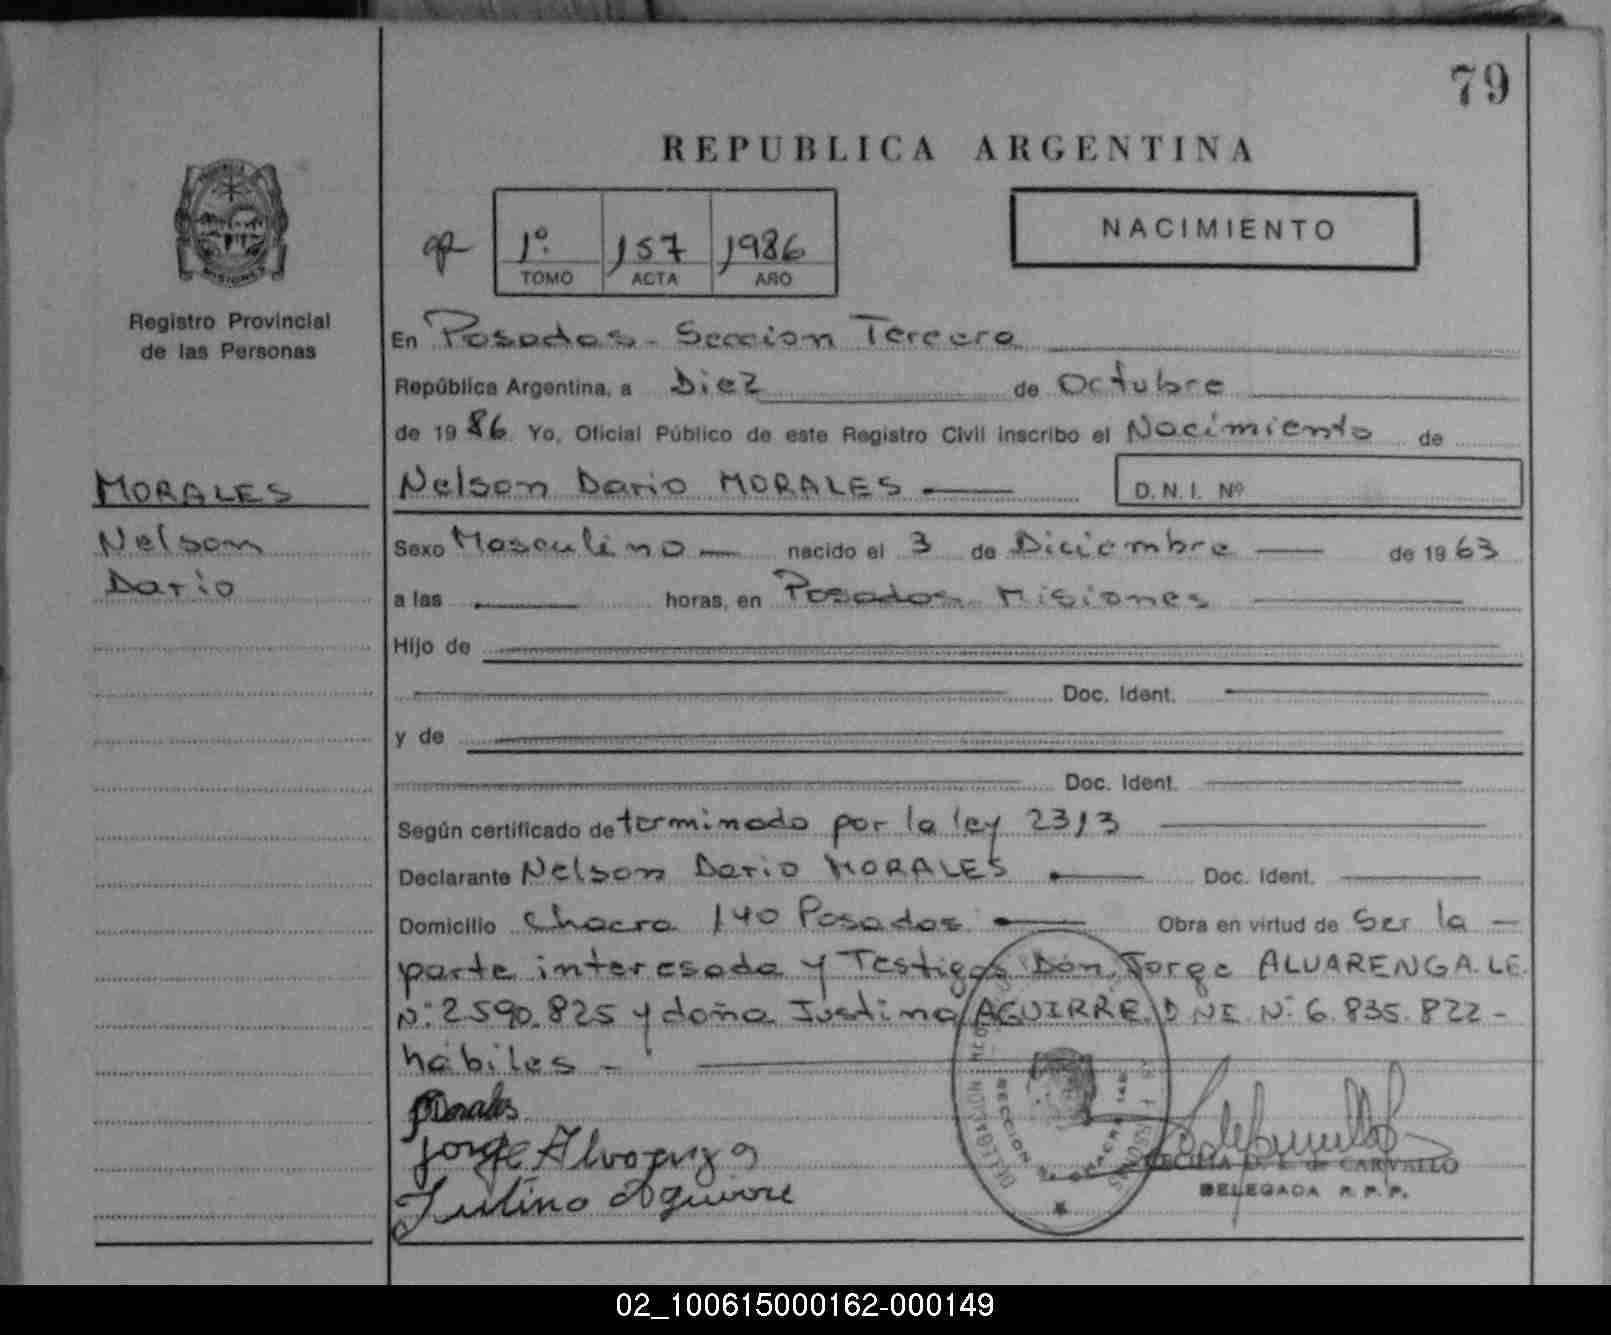 79
REPUBLICA ARGENTINA
1º 157 1986
TOMO ACTA AÑO
NACIMIENTO
Registro Provincial
de las Personas
En Posadas - Seccion Tercera
República Argentina, a Diez de Octubre
de 1986 Yo, Oficial Público de este Registro Civil inscribo el Nacimiento de
MORALES
Nelson
Dario
Nelson Dario MORALES D.N.I. Nº
Sexo Masculino nacido el 3 de Diciembre de 1963
a las horas, en Posadas Misiones
Hijo de
Doc. Ident.
y de
Doc. Ident.
Según certificado de terminado por la ley 2313
Declarante Nelson Dario MORALES Doc. Ident.
Domicilio Chacra 140 Posadas Obra en virtud de Ser la -
parte interesada y Testigos Don Jorge ALVARENGA. LE.
Nº: 2.590.825 y doña Justina AGUIRRE. DNI. Nº: 6.835.822 -
hábiles -
Morales
Jorge Alvarenga
Justina Aguirre
D. L. de CARVALLO
DELEGADA R. P. P.
02_100615000162-000149